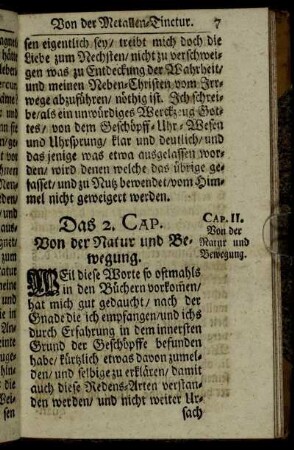 Von der Metallen-Tinctur. 7
sen eigentlich sey/ treibt mich doch die
Liebe zum Nechsten/ nicht zu verschwei-
gen was zu Entdeckung der Wahrheit/
und meinen Neben-Christen vom Irr-
wege abzuführen/ nöthig ist. Ich schrei-
be/ als ein unwürdiges Werckzeug Got-
tes/ von dem Geschöpff-Uhr-Wesen
und Uhrsprung/ klar und deutlich/ und
das jenige was etwa ausgelassen wor-
den/ wird denen welche das übrige ge-
fasset/ und zu Nutz bewendet/ vom Him-
mel nicht geweigert werden.
Das 2. CAP.
Von der Natur und Be-
wegung.
CAP. II.
Von der
Natur und
Bewegung.
WEil diese Worte so oftmahls
in den Büchern vorkom̃en/
hat mich gut gedaucht/ nach der
Gnade die ich empfangen/ und ichs
durch Erfahrung in dem innersten
Grund der Geschöpffe befunden
habe/ kürtzlich etwas davon zumel-
den/ und selbige zu erklären/ damit
auch diese Redens-Arten verstan-
den werden/ und nicht weiter Ur-
sach